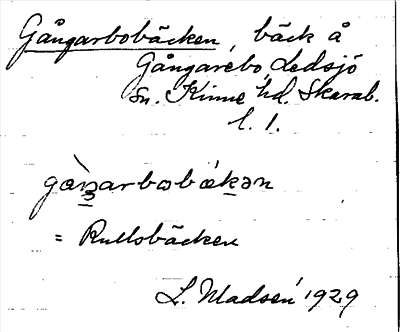 Gångarbobäcken, bäck å
Gångarebo, Ledsjö
sn. Kinne hd. Skarab.
l. 1.
gæ̀ŋarbobækən
= Rullsbäcken
L. Madsén 1929